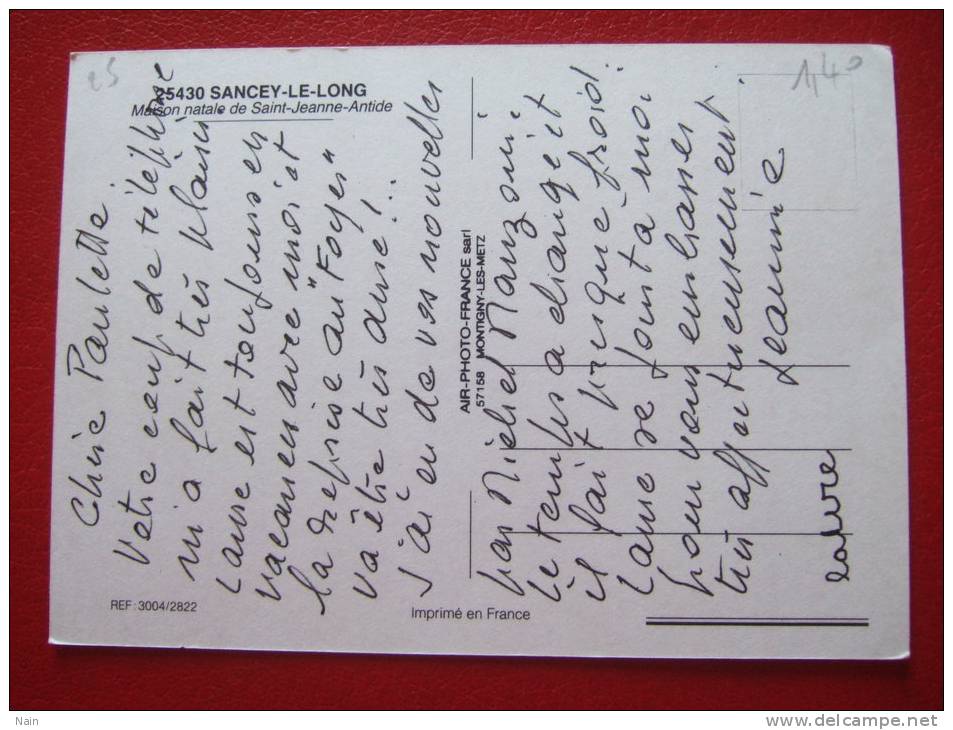 25
1,40
25430 SANCEY-LE-LONG
Maison natale de Saint-Jeanne-Antide
Chère Paulette
Votre coup de téléphone
m'a fait très plaisir.
Laure est toujours en
vacances avec moi et
la reprise au "Foyer"
va être très dure!..
J'ai eu de vos nouvelles
par Michel Manzoni
Le temps a changé et
il fait presque froid!
Laure se joint à moi
pour vous embrasser
très affectueusement.
Jeannie
Laure
AIR-PHOTO-FRANCE sarl
57158 MONTIGNY-LES-METZ
REF : 3004/2822
Imprimé en France
Nain
delcampe.net